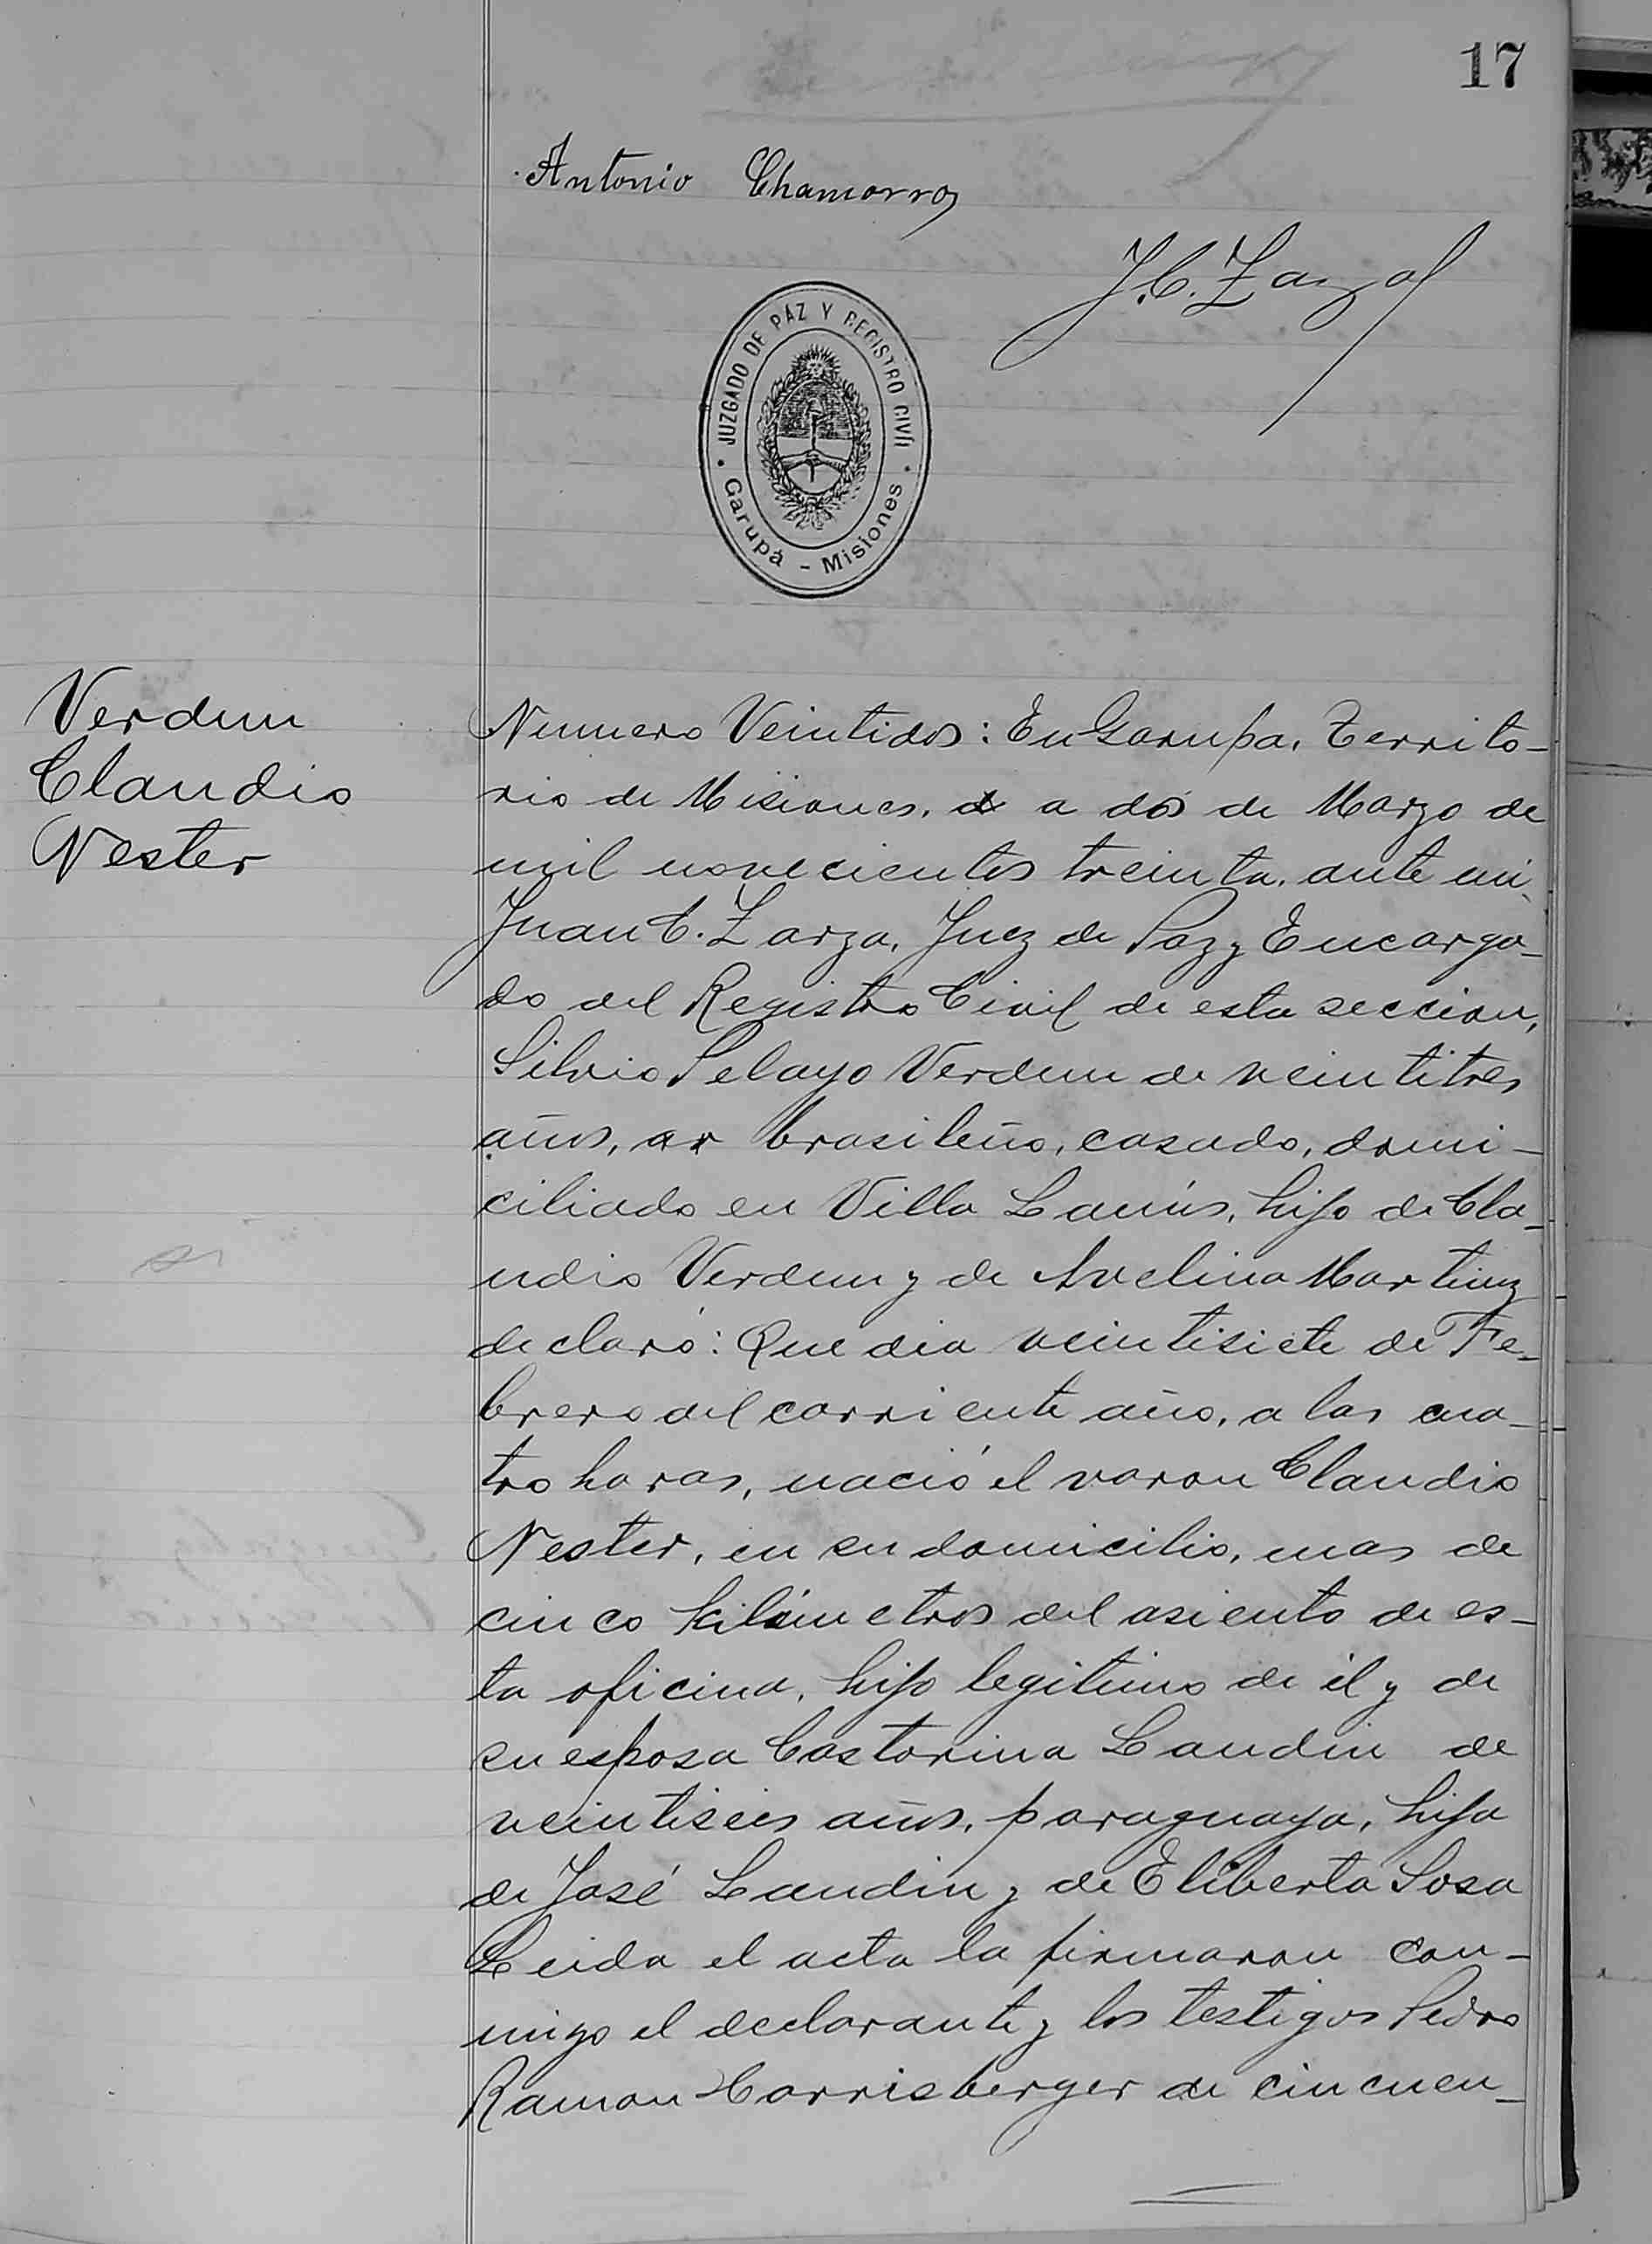 17
Antonio Chamorro
J. C. Zarza
JUZGADO DE PAZ Y REGISTRO CIVIL
Garupá - Misiones
Verdun
Claudio
Nester
Numero Veintidos: En Garupa, Territo-
rio de Misiones, a dos de Marzo de
mil novecientos treinta, ante mi,
Juan C. Zarza, Juez de Paz y Encarga-
do del Registro Civil de esta seccion,
Silvio Pelayo Verdun de veintitres
años, brasileño, casado, domi-
ciliado en Villa Lanús, hijo de Cla-
udio Verdun y de Avelina Martinez
declaró: Que dia veintisiete de Fe-
brero del corriente año, a las cua-
tro horas, nació el varon Claudio
Nester, en su domicilio, mas de
cinco kilómetros del asiento de es-
ta oficina, hijo legitimo de él y de
su esposa Castorina Landin de
veintiseis años, paraguaya, hija
de José Landin y de Eliberta Sosa
Leida el acta la firmaron con-
migo el declarante y los testigos Pedro
Ramon Harrisberger de cincuen-